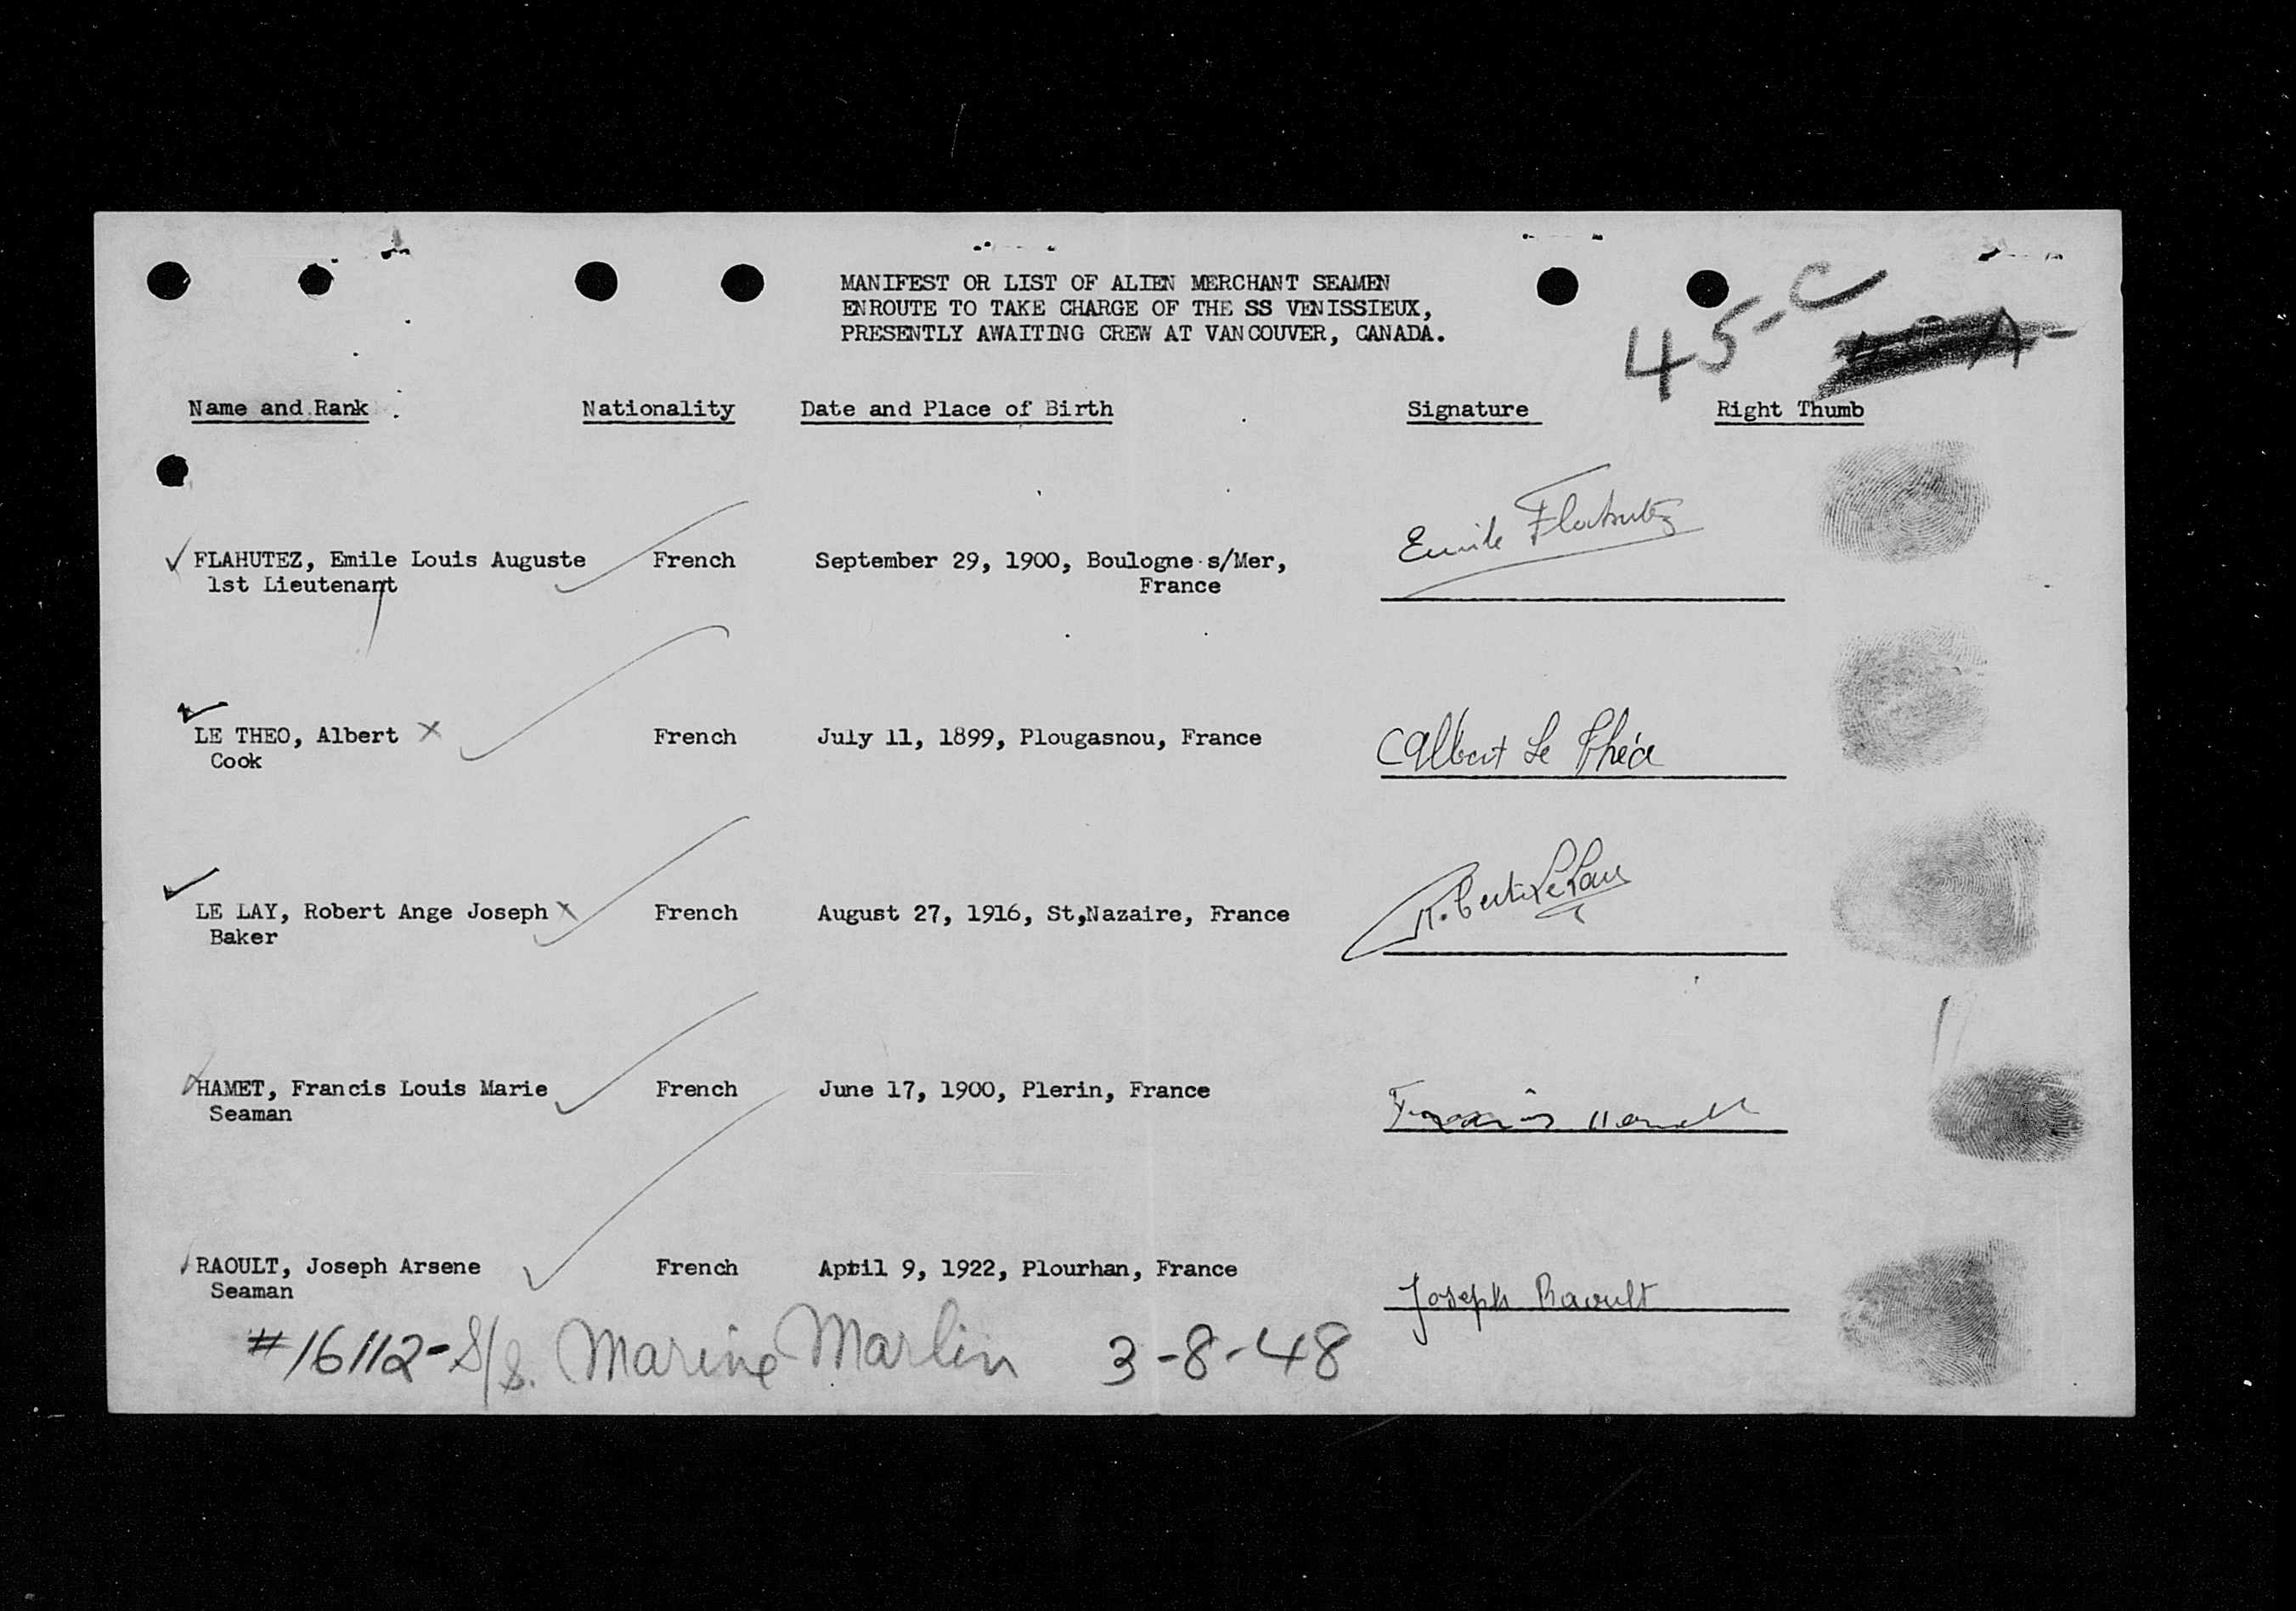 MANIFEST OR LIST OF ALIEN MERCHANT SEAMEN
ENROUTE TO TAKE CHARGE OF THE SS VENISSIEUX,
PRESENTLY AWAITING CREW AT VANCOUVER, CANADA.
45-C
Name and Rank Nationality Date and Place of Birth Signature Right Thumb
FLAHUTEZ, Emile Louis Auguste French September 29, 1900, Boulogne s/Mer, Emile Flahutez
1st Lieutenant France
LE THEO, Albert X French July 11, 1899, Plougasnou, France Albert Le Théo
Cook
LE LAY, Robert Ange Joseph X French August 27, 1916, St,Nazaire, France
Baker
HAMET, Francis Louis Marie French June 17, 1900, Plerin, France Francis
Seaman
RAOULT, Joseph Arsene French April 9, 1922, Plourhan, France Joseph Raoult
Seaman
#16112-S/S. Marine Marlin 3-8-48